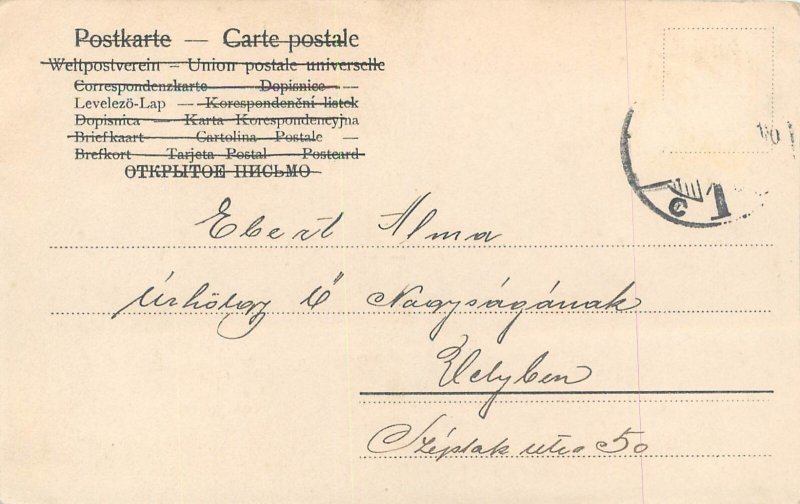 Postkarte — Carte postale
Weltpostverein — Union postale universelle
Correspondenzkarte — Dopisnice —
Levelező-Lap — Korespondenční listek
Dopisnica — Karta Korespondencyjna
Briefkaart — Cartolina Postale —
Brefkort — Tarjeta Postal — Postcard
ОТКРЫТОЕ ПИСЬМО
Ebert Alma
Úrhölgy Ő Nagyságának
Helyben
Széplak utca 50